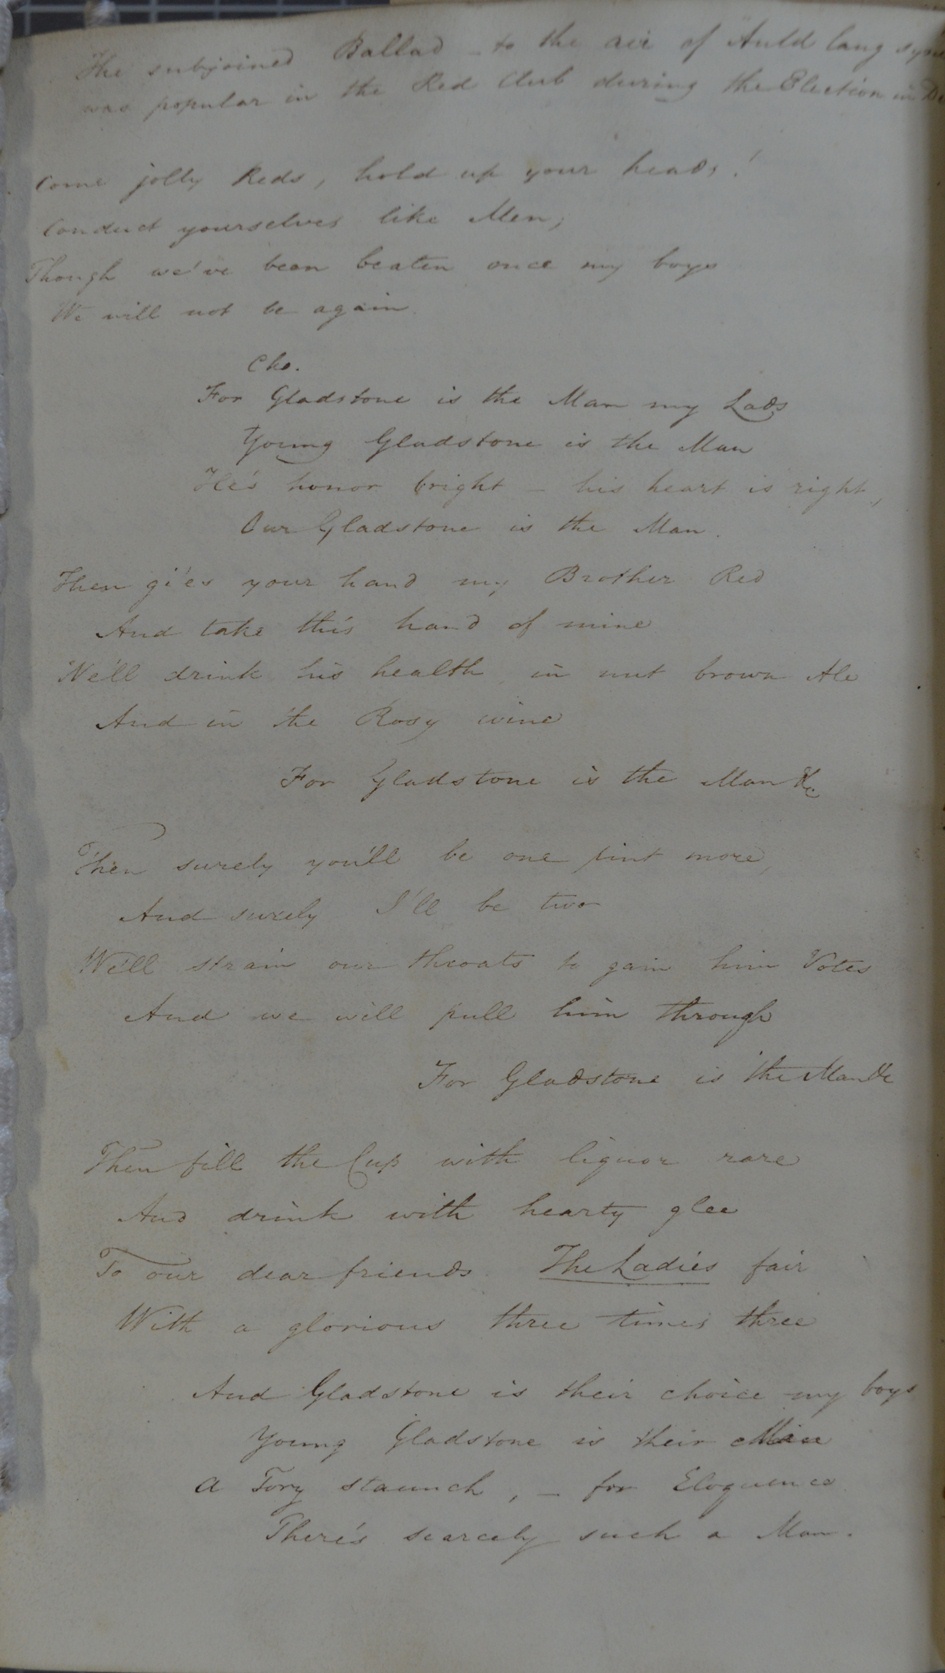 The subjoined Ballad - to the air of Auld lang syne
was popular in the Red Club during the Election in
Come jolly Reds, hold up your heads!
Conduct yourselves like Men;
Though we've been beaten once my boys
We will not be again.
Cho.
For Gladstone is the Man my Lads
Young Gladstone is the Man
He's honor bright - his heart is right,
Our Gladstone is the Man.
Then gi'es your hand my Brother Red
And take this hand of mine
We'll drink his health in nut brown Ale
And in the Rosy wine
For Gladstone is the Man &c
Then surely you'll be one pint more,
And surely I'll be two
We'll strain our throats to gain him Votes
And we will pull him through
For Gladstone is the Man &c
Then fill the Cup with liquor rare
And drink with hearty glee
To our dear friends The Ladies fair
With a glorious three times three
And Gladstone is their choice my boys
Young Gladstone is their Man
A Tory staunch, - for Eloquence
There's scarcely such a Man.